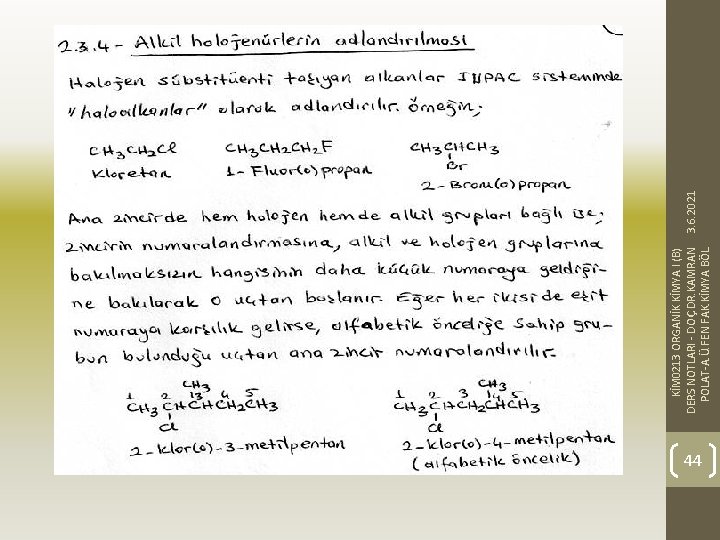 2.3.4 - Alkil halojenürlerin adlandırılması
Halojen sübstitüenti taşıyan alkanlar IUPAC sisteminde
"haloalkanlar" olarak adlandırılır. Örneğin;
CH3CH2Cl CH3CH2CH2F CH3CHCH3
Br
Kloretan 1- Fluor(o)propan
2- Brom(o)propan
Ana zincirde hem halojen hemde alkil grupları bağlı ise;
zincirin numaralandırmasına, alkil ve halojen gruplarına
bakılmaksızın hangisinin daha küçük numaraya geldiği-
ne bakılarak o uçtan başlanır. Eğer her ikiside eşit
numaraya karşılık gelirse, alfabetik önceliğe sahip gru-
bun bulunduğu uçtan ana zincir numaralandırılır.
CH3 CH3
1 2 3 4 5 1 2 3 4 5
CH3CHCHCH2CH3 CH3CHCH2CHCH3
Cl Cl
2-klor(o)-3-metilpentan 2-klor(o)-4-metilpentan
(alfabetik öncelik)
KİM0213 ORGANİK KİMYA I (B)
DERS NOTLARI - DOÇ.DR.KAMRAN 3.6.2021
POLAT-A.Ü.FEN FAK.KİMYA BÖL
44